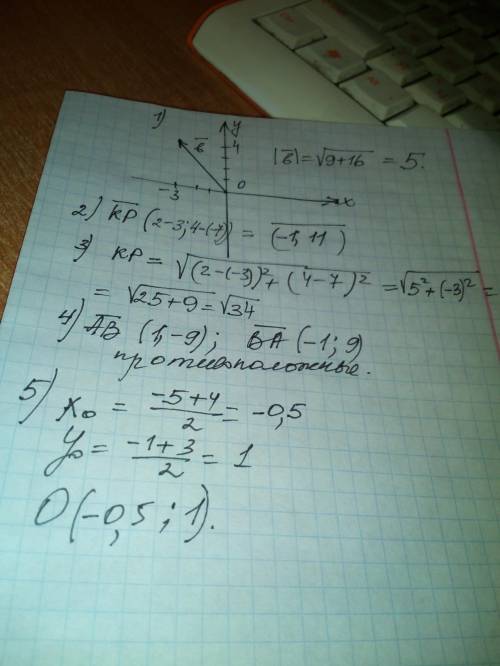 1)
y
4
b̅
-3
0
x
|b̅| = √9+16 = 5.
2) K̅P̅ (2-3; 4-(-7)) = (-1, 11)
3) KP = √(2-(-3))² + (4-7)² = √5²+(-3)² =
= √25+9 = √34
4) A̅B̅ (1, -9); B̅A̅ (-1; 9)
противоположные.
5) x₀ = (-5+4)/2 = -0,5
y₀ = (-1+3)/2 = 1
O(-0,5; 1).